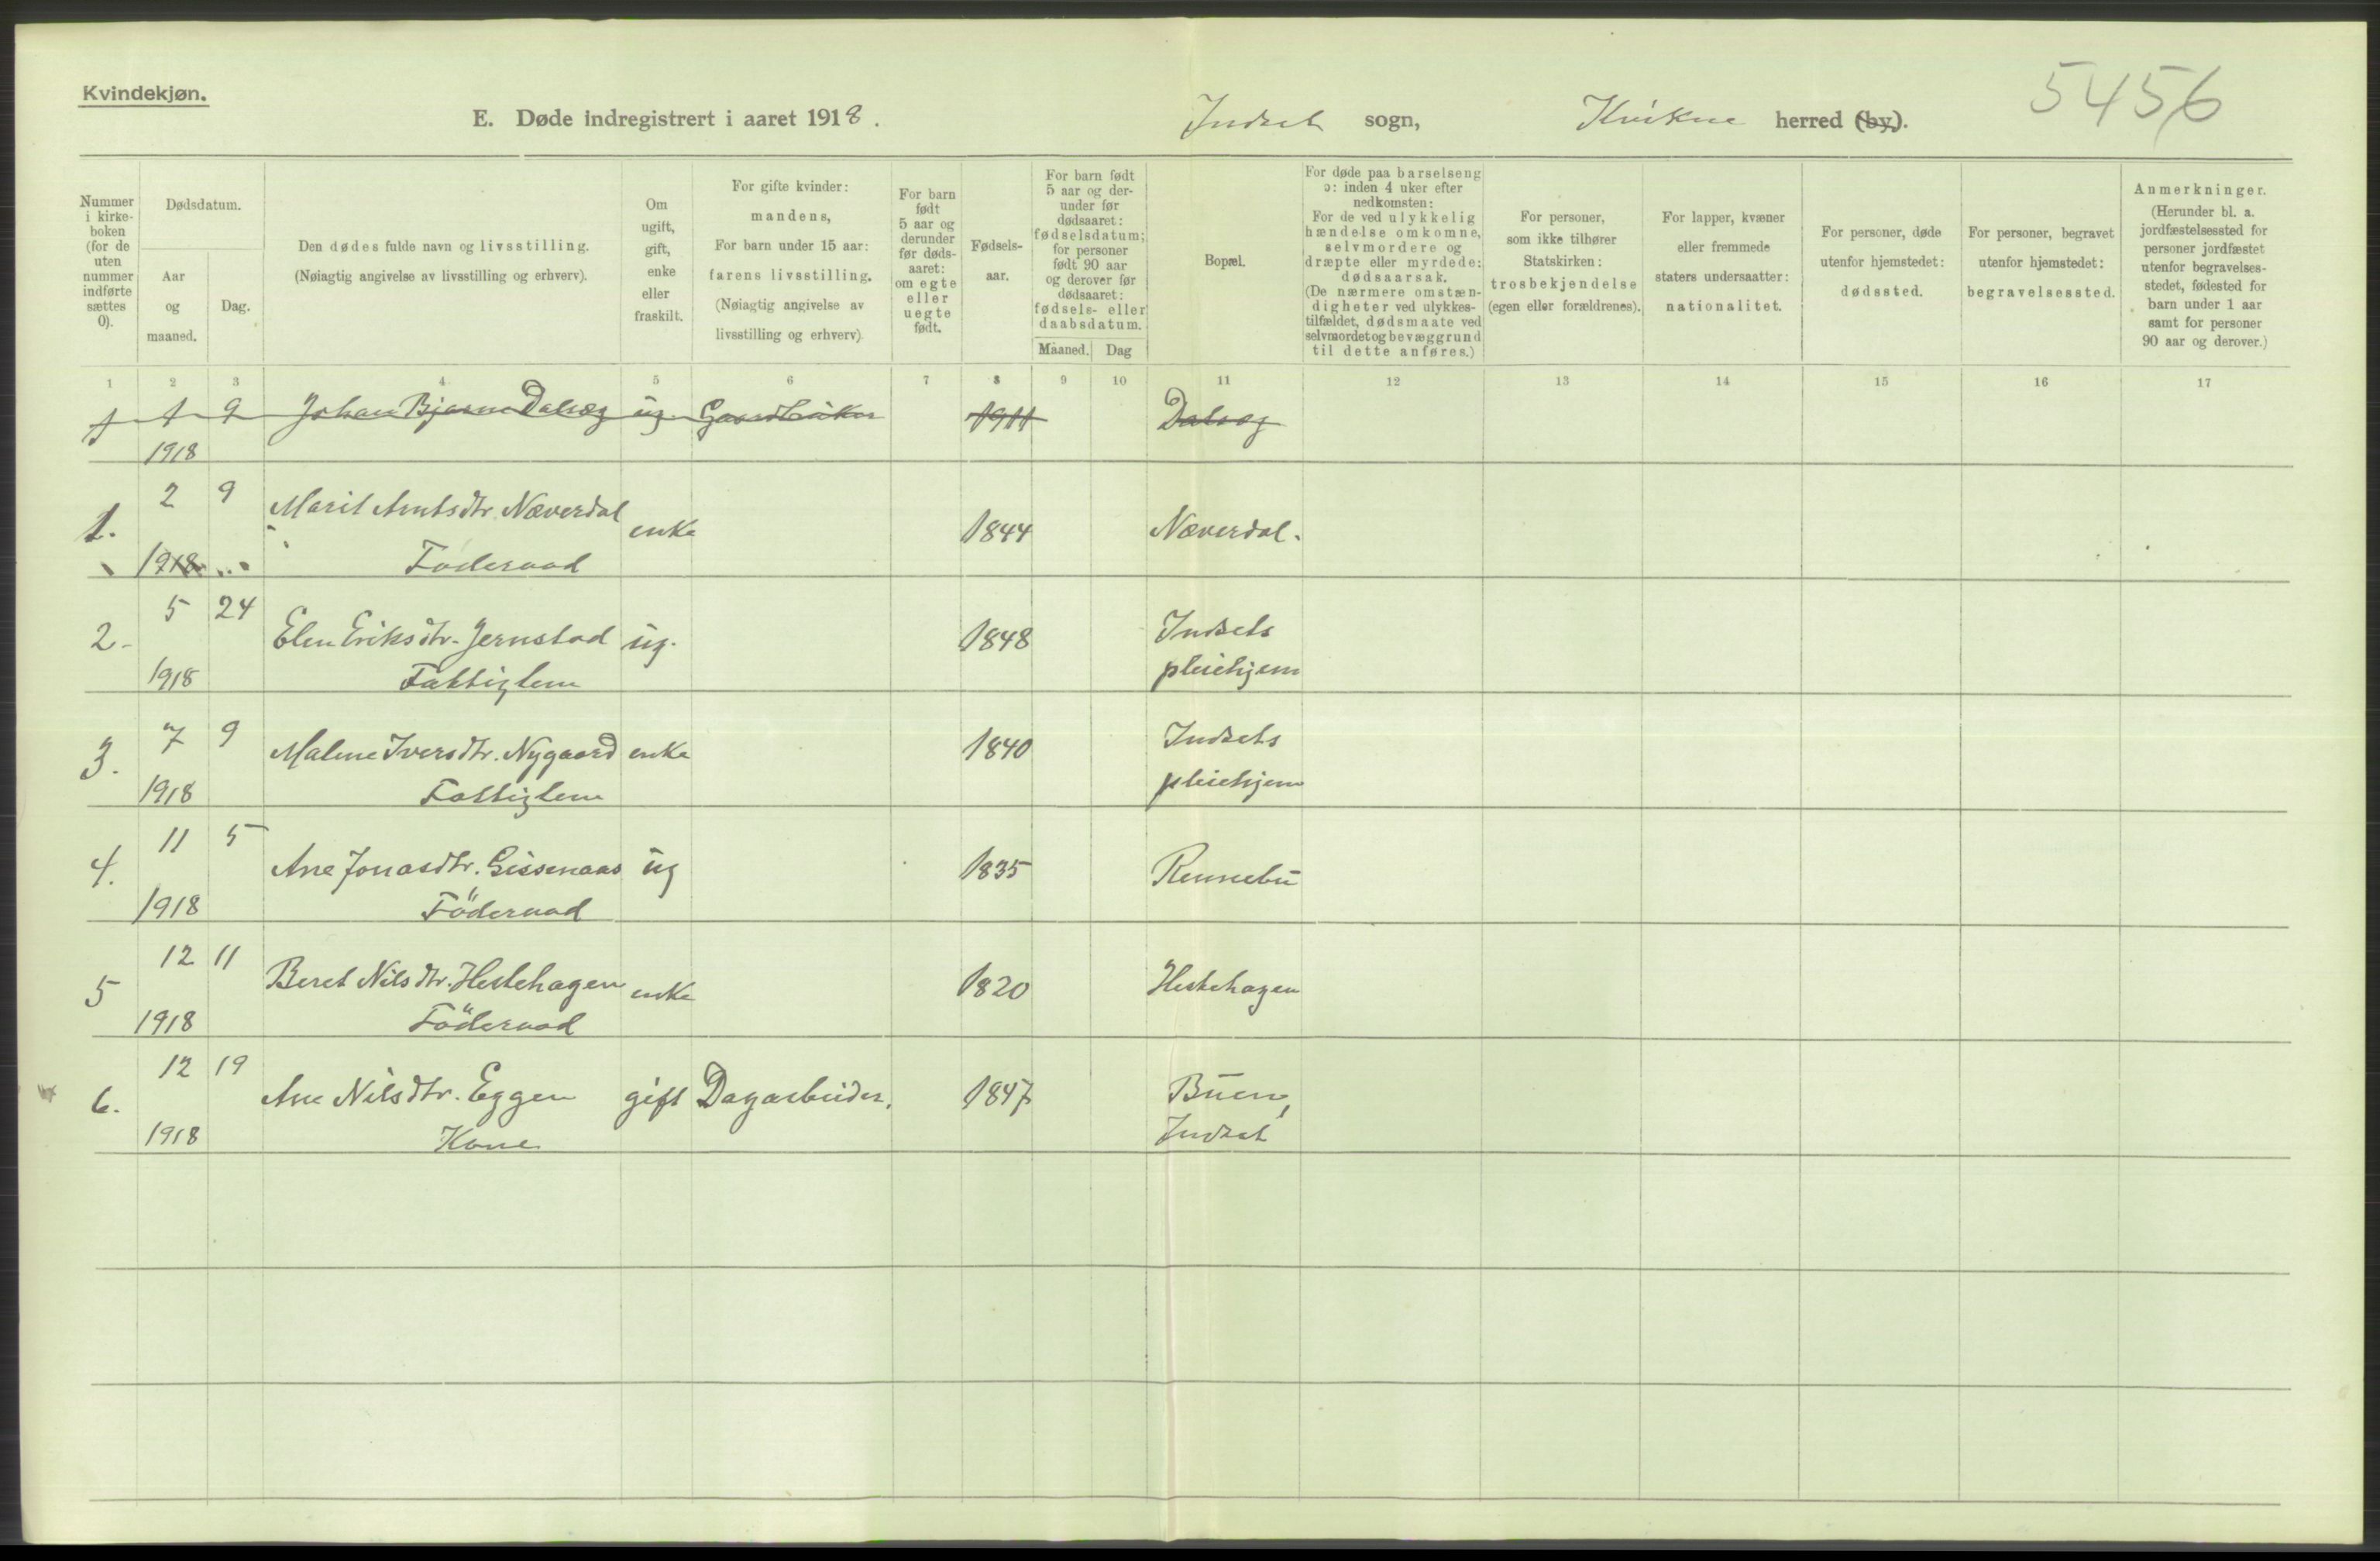 Kvindekjøn.
E. Døde indregistrert i aaret 1918.
Indset sogn, Kvikne herred (by).
5456
Nummer i kirke-boken (for de uten nummer indførte sættes 0).
Dødsdatum.
Aar og maaned.
Dag.
Den dødes fulde navn og livsstilling.
(Nøiagtig angivelse av livsstilling og erhverv).
Om ugift, gift, enke eller fraskilt.
For gifte kvinder:
mandens,
For barn under 15 aar:
farens livsstilling.
(Nøiagtig angivelse av
livsstilling og erhverv).
For barn født 5 aar og derunder før døds-aaret: om egte eller uegte født.
Fødsels-aar.
For barn født 5 aar og der-under før dødsaaret: fødselsdatum; for personer født 90 aar og derover før dødsaaret: fødsels- eller daabsdatum.
Maaned. Dag
Bopæl.
For døde paa barselseng
ɔ: inden 4 uker efter
nedkomsten:
For de ved ulykkelig
hændelse omkomne,
selvmordere og
dræpte eller myrdede:
dødsaarsak.
(De nærmere omstæn-
digheter ved ulykkes-
tilfældet, dødsmaate ved
selvmordet og bevæggrund
til dette anføres.)
For personer,
som ikke tilhører
Statskirken:
trosbekjendelse
(egen eller forældrenes).
For lapper, kvæner
eller fremmede
staters undersaatter:
nationalitet.
For personer, døde
utenfor hjemstedet:
dødssted.
For personer, begravet
utenfor hjemstedet:
begravelsessted.
Anmerkninger.
(Herunder bl. a.
jordfæstelsessted for
personer jordfæstet
utenfor begravelses-
stedet, fødested for
barn under 1 aar
samt for personer
90 aar og derover.)
1 2 3 4 5 6 7 8 9 10 11 12 13 14 15 16 17
1 1 9 Johan Bjarne Dalsæg ug. Gaardbruker 1911 Dalsæg
1918
2 9
1. Marit Arntsdtr. Næverdal enke 1844 Næverdal.
1918 Føderaad
5 24
2- Elen Eriksdtr. Jernstad ug. 1848 Indsets
1918 Fattiglem pleiehjem
7 9
3. Malene Iversdtr. Nygaard enke 1840 Indsets
1918 Fattiglem pleiehjem
11 5
4. Ane Jonasdtr. Gissenaas ug 1835 Rennebu
1918 Föderaad
12 11
5 Beret Nilsdtr. Hestehagen enke 1820 Hestehagen
1918 Föderaad
12 19
6. Ane Nilsdtr. Eggen gift Dagarbeider. 1847 Buen,
1918 Kone Indset